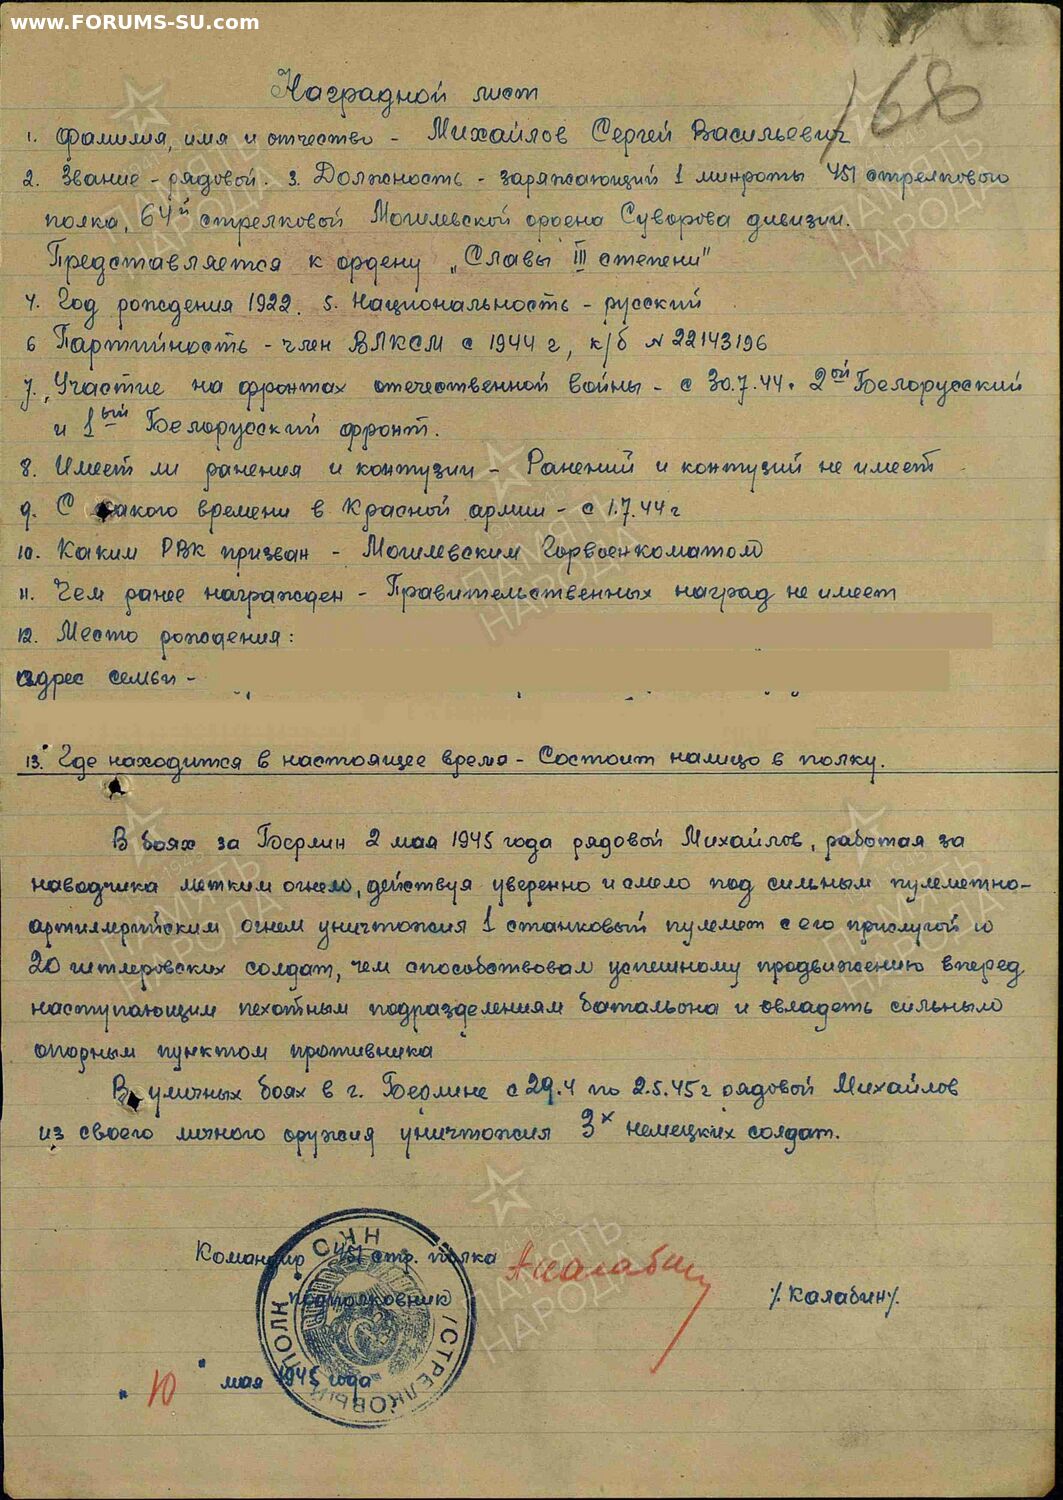 www.FORUMS-SU.com
168
Наградной лист
1. Фамилия, имя и отчество - Михайлов Сергей Васильевич
2. Звание - рядовой. 3. Должность - заряжающий 1 минроты 451 стрелкового
полка, 64й стрелковой Могилевской ордена Суворова дивизии.
Представляется к ордену „Славы III степени"
4. Год рождения 1922. 5. Национальность - русский
6 Партийность - член ВЛКСМ с 1944 г, к/б № 22143196
7. Участие на фронтах отечественной войны - с 30.7.44. 2ой Белорусский
и 1ый Белорусский фронт.
8. Имеет ли ранения и контузии - Ранений и контузий не имеет
9. С какого времени в Красной армии - с 1.7.44 г
10. Каким РВК призван - Могилевским Горвоенкоматом
11. Чем ранее награжден - Правительственных наград не имеет
12. Место рождения:
адрес семьи -
13. Где находится в настоящее время - Состоит налицо в полку.
В боях за Берлин 2 мая 1945 года рядовой Михайлов, работая за
наводчика метким огнем, действуя уверенно и смело под сильным пулеметно-
артиллерийским огнем уничтожил 1 станковый пулемет с его прислугой и
20 гитлеровских солдат, чем способствовал успешному продвижению вперед
наступающим пехотным подразделениям батальона и овладеть сильным
опорным пунктом противника
В уличных боях в г. Берлине с 29.4 по 2.5.45 г рядовой Михайлов
из своего личного оружия уничтожил 3х немецких солдат.
НКО
Командир 451 стр. полка
подполковник /Калабин/.
СТРЕЛКОВЫЙ ПОЛК
"10" мая 1945 года
ПАМЯТЬ НАРОДА